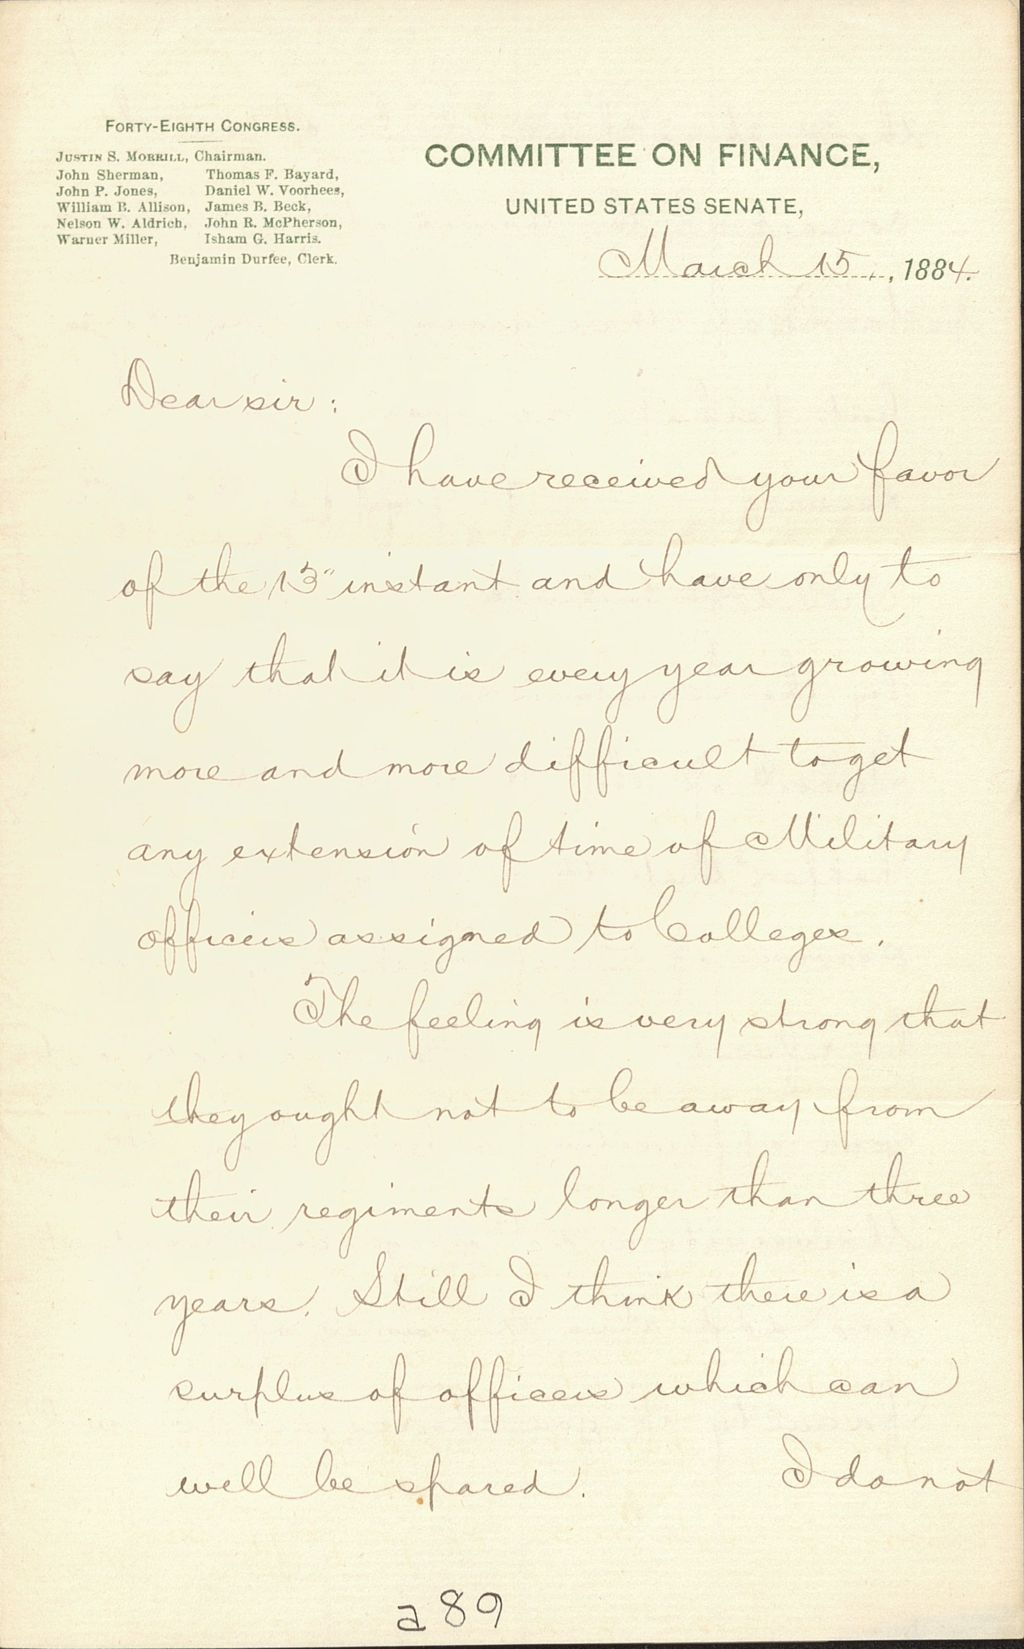 FORTY-EIGHTH CONGRESS.
JUSTIN S. MORRILL, Chairman.
John Sherman, Thomas F. Bayard,
John P. Jones, Daniel W. Voorhees,
William B. Allison, James B. Beck,
Nelson W. Aldrich, John R. McPherson,
Warner Miller, Isham G. Harris.
Benjamin Durfee, Clerk.
COMMITTEE ON FINANCE,
UNITED STATES SENATE,
March 15, 1884.
Dear sir:
I have received your favor
of the 13" instant and have only to
say that it is every year growing
more and more difficult to get
any extension of time of Military
officers assigned to Colleges.
The feeling is very strong that
they ought not to be away from
their regiments longer than three
years. Still I think there is a
surplus of officers which can
well be spared. I do not
a89